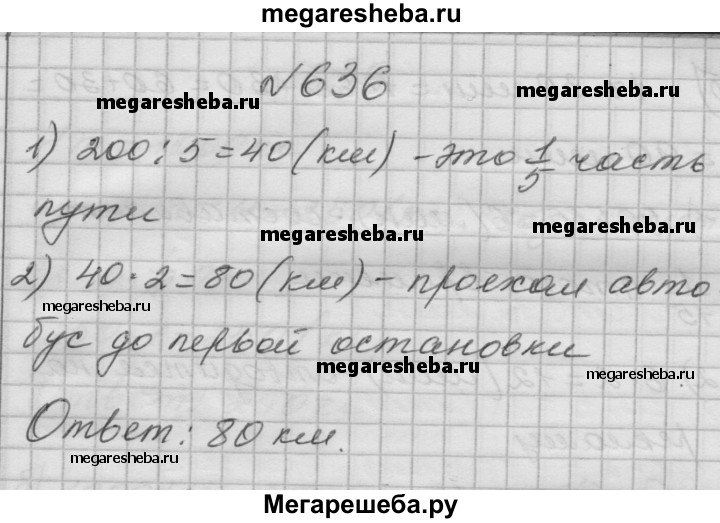 megaresheba.ru
№636
megaresheba.ru megaresheba.ru
1) 200:5=40 (км) - это 1/5 часть
пути
megaresheba.ru
2) 40·2=80 (км) - проехал авто
megaresheba.ru
бус до первой остановки
megaresheba.ru megaresheba.ru
Ответ: 80 км.
megaresheba.ru
Мегарешеба.ру